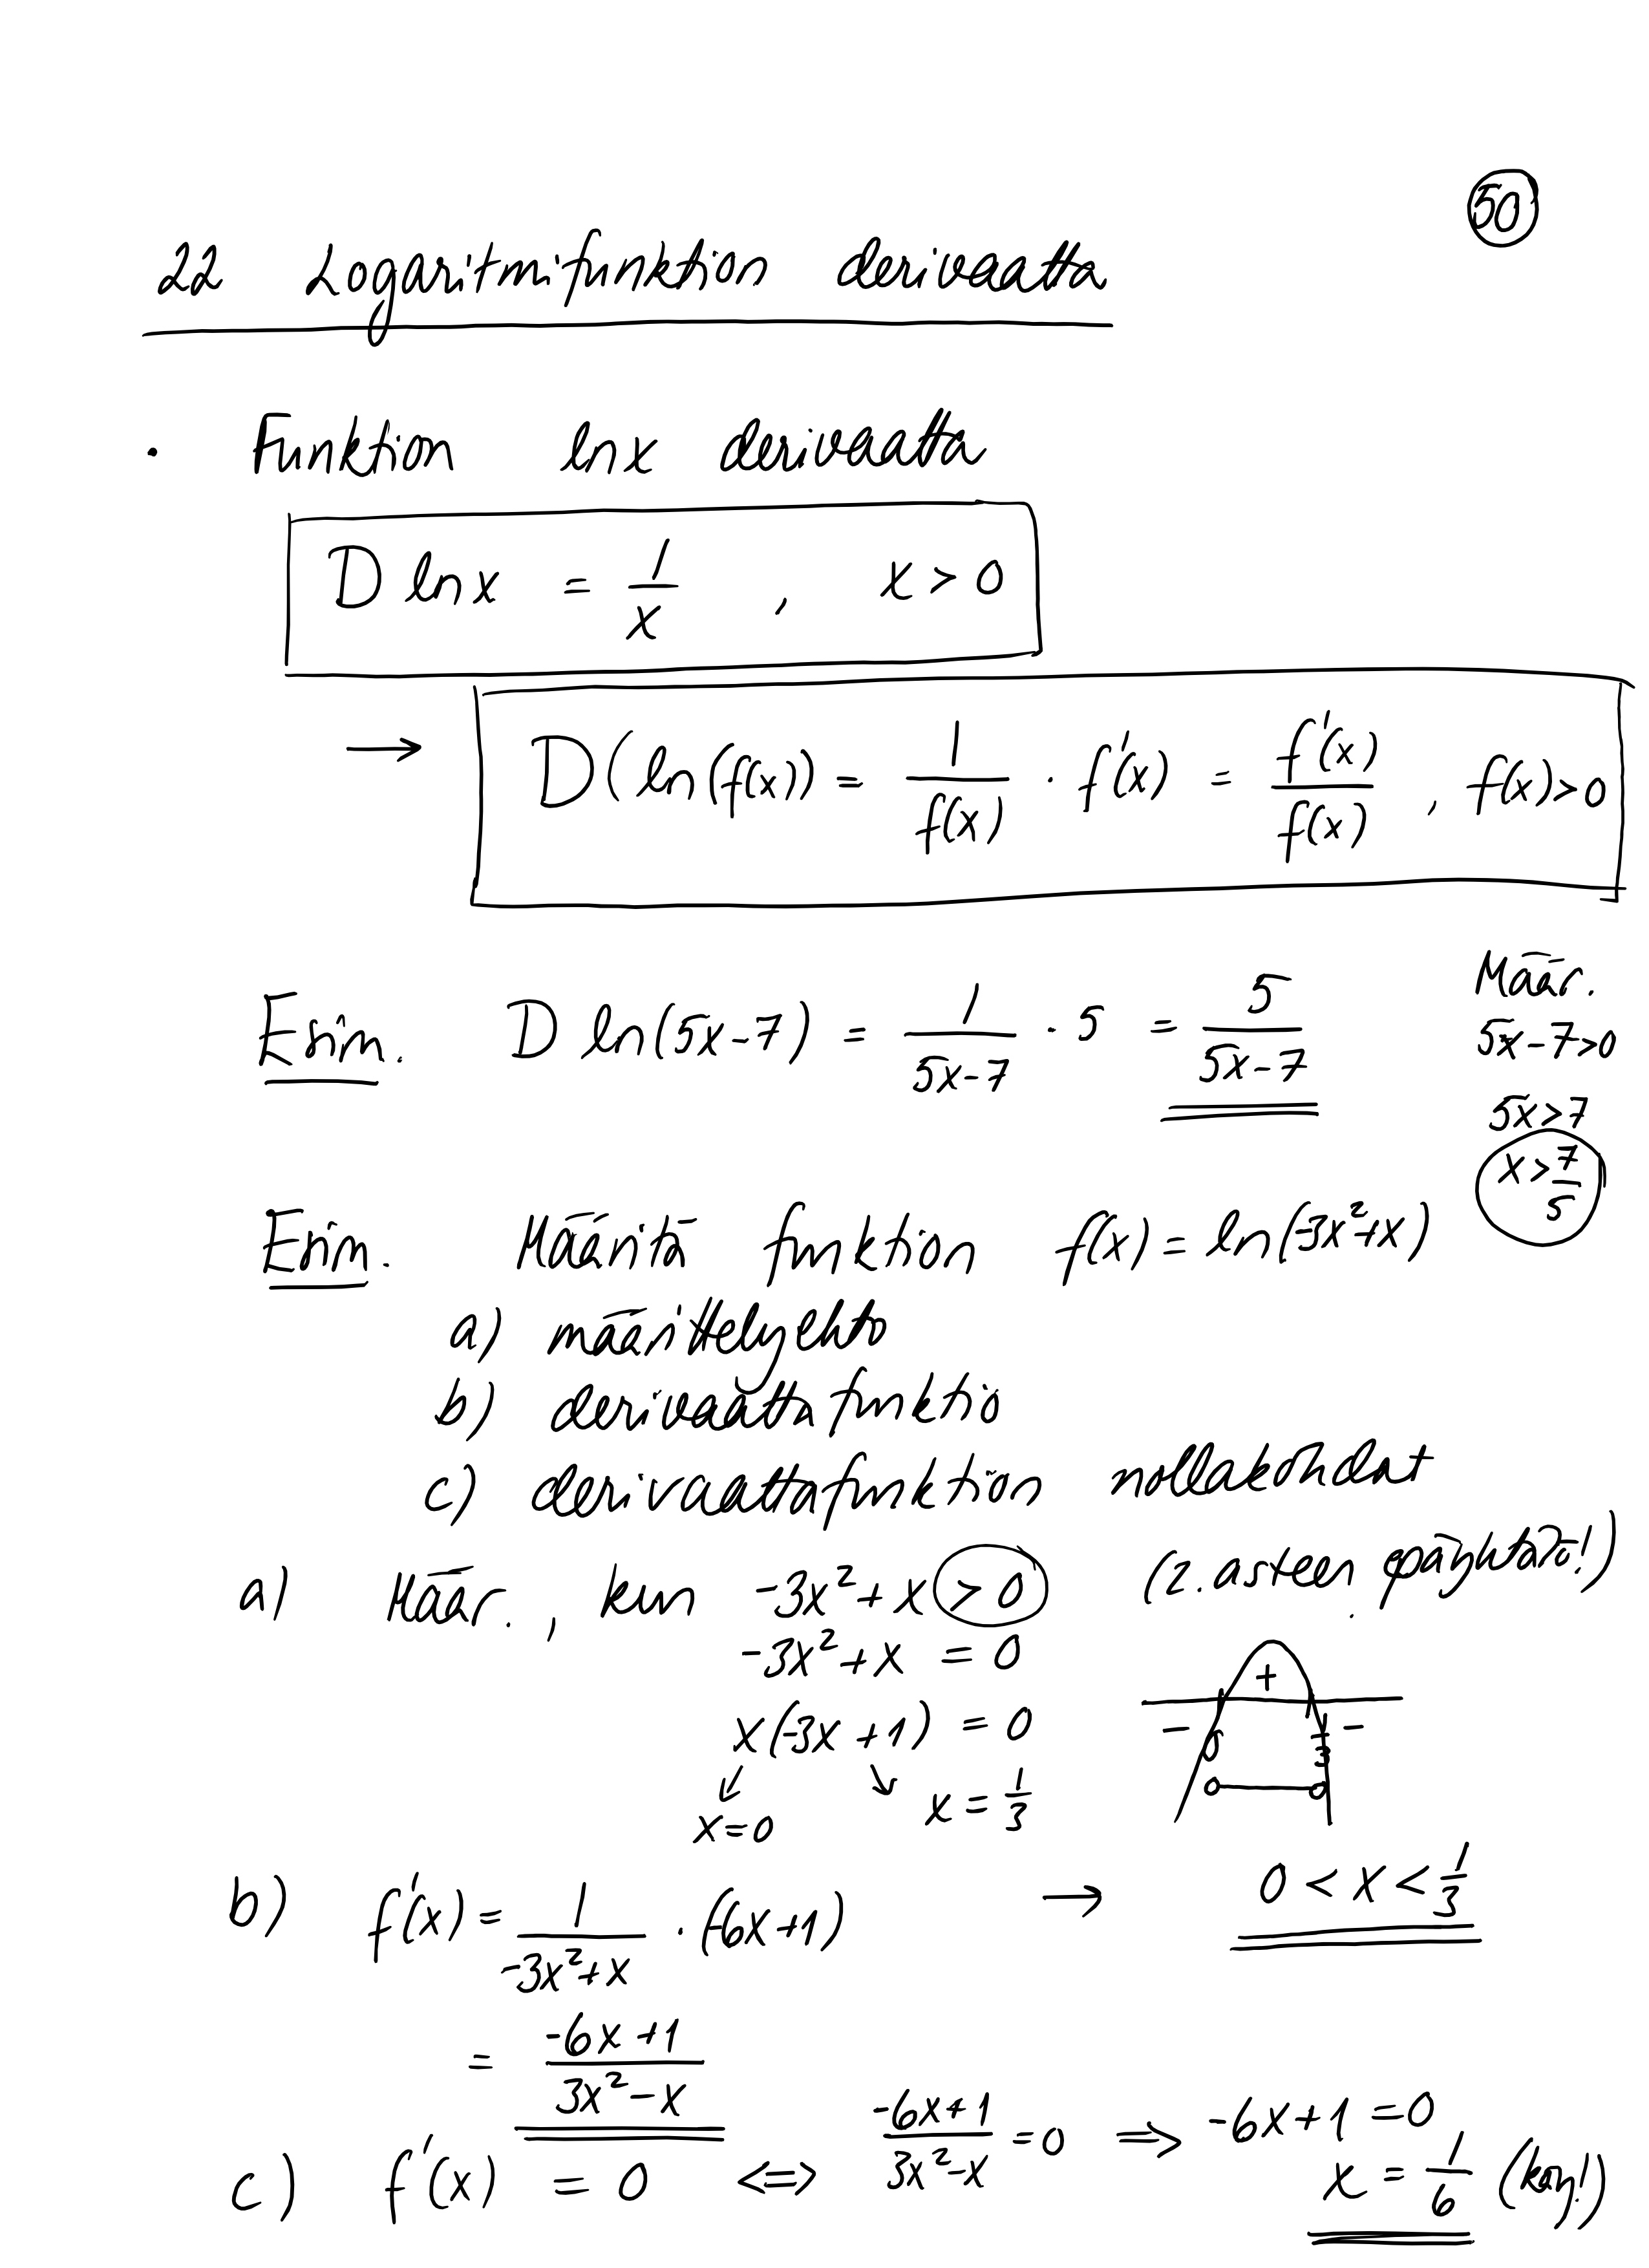 50
22 Logaritmifunktion derivaatta
· Funktion ln x derivaatta
D ln x = 1/x , x > 0
→ D(ln(f(x)) = 1/f(x) · f'(x) = f'(x)/f(x) , f(x)>0
Esim. D ln(5x-7) = 1/(5x-7) · 5 = 5/(5x-7)
Määr.
5x-7>0
5x>7
x>7/5
Esim. Määritä funktion f(x) = ln(-3x²+x)
a) määrittelyehto
b) derivaattafunktio
c) derivaattafunktion nollakohdat
a) Määr., kun -3x²+x > 0 (2. asteen epäyhtälö!)
-3x²+x = 0
x(-3x+1) = 0
x=0 x = 1/3
+
- -
0 1/3
→ 0 < x < 1/3
b) f'(x) = 1/(-3x²+x) · (-6x+1)
= (-6x+1)/(3x²-x)
c) f'(x) = 0 ⇔ (-6x+1)/(3x²-x) = 0 ⇒ -6x+1 = 0
x = 1/6 (käy!)